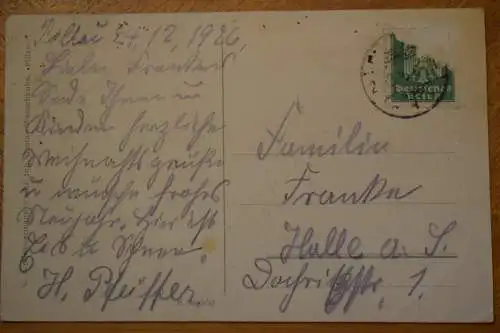 24/12, 1926,
Liebe Franken
Sende Ihnen u
Kindern herzliche
Weihnachtsgrüße
u wünsche frohes
Neujahr. Hier ist
Eis u Schnee.
H. Pfeiffer
Deutsches
Reich
Familie
Franke
Halle a. S.
str. 1.